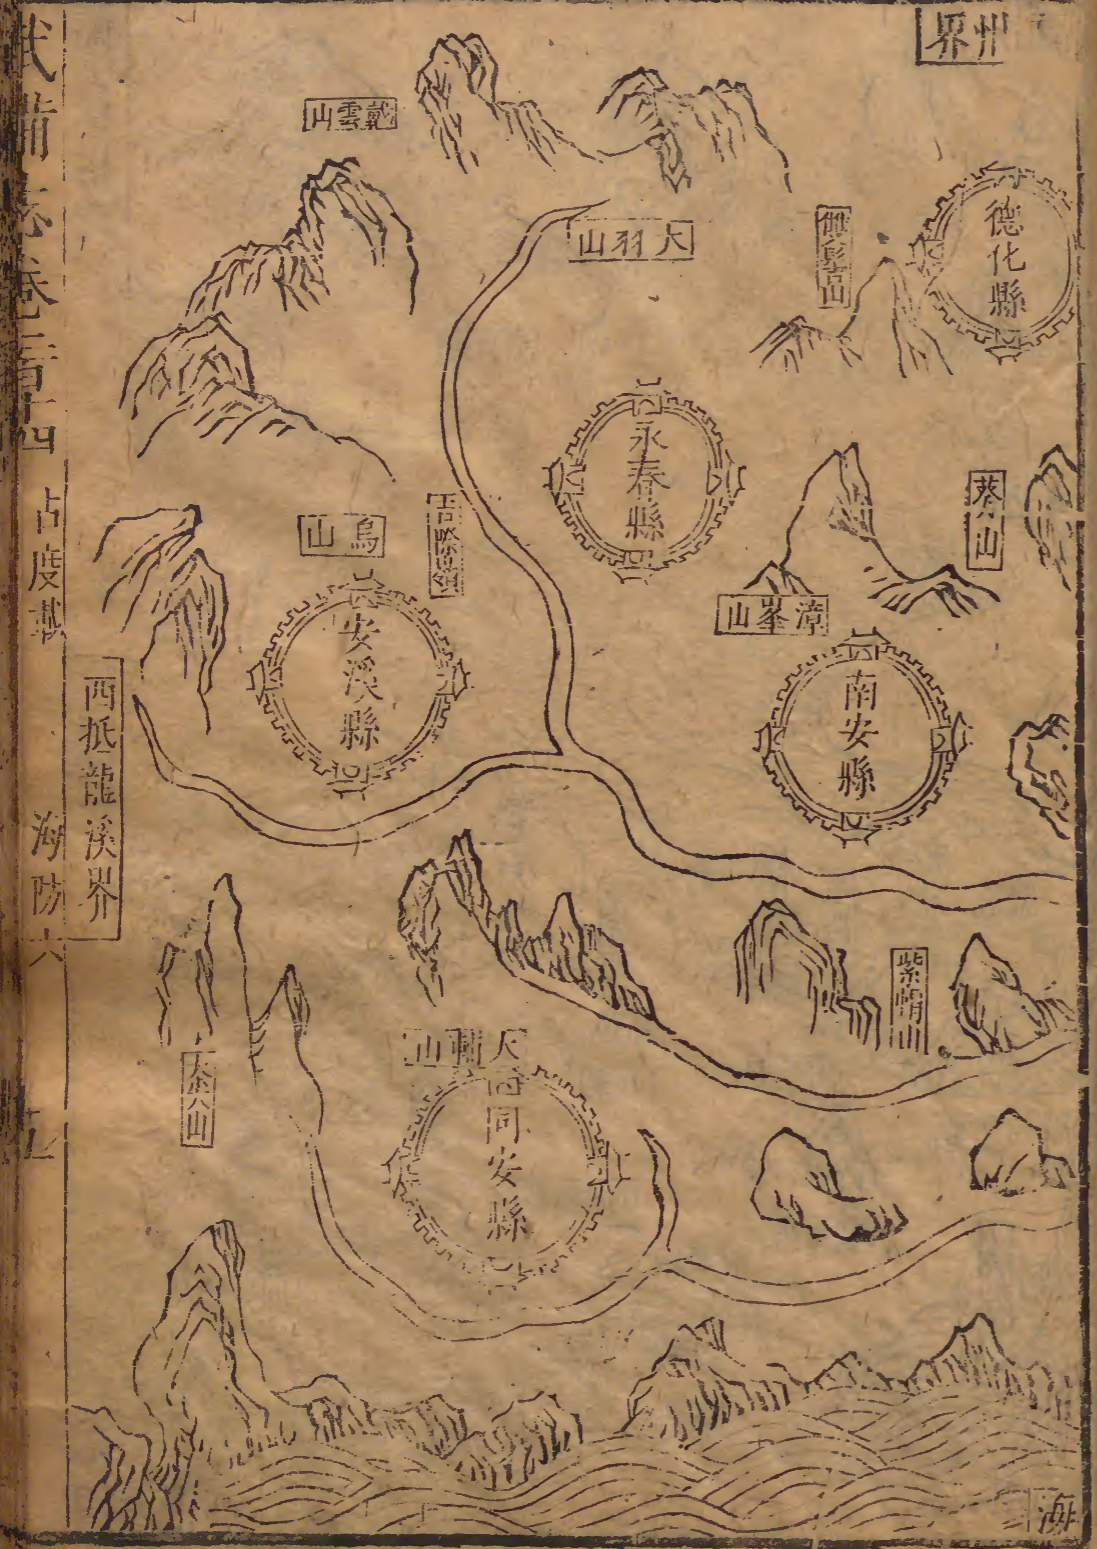 州界
戴雲山
大羽山
德化縣
永春縣
葵山
烏山
漳峯山
安溪縣
南安縣
西抵龍溪界
紫帽山
大輪山
同安縣
海
武備志卷二百十四
占度載
海防六